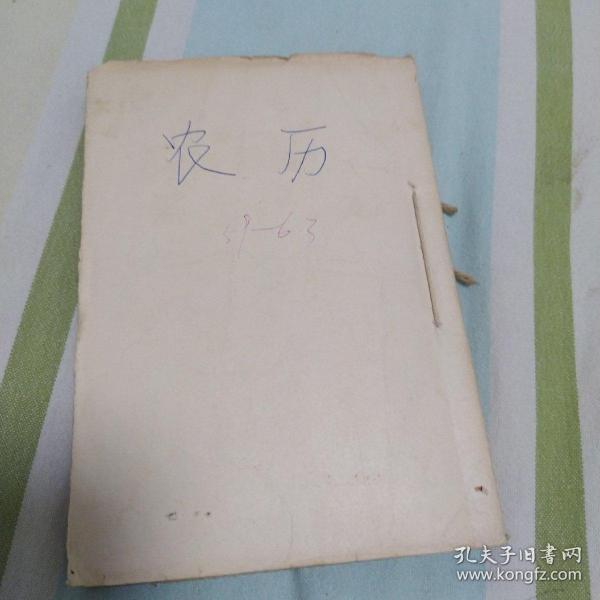 农历
59-63
孔夫子旧書网
www.kongfz.com